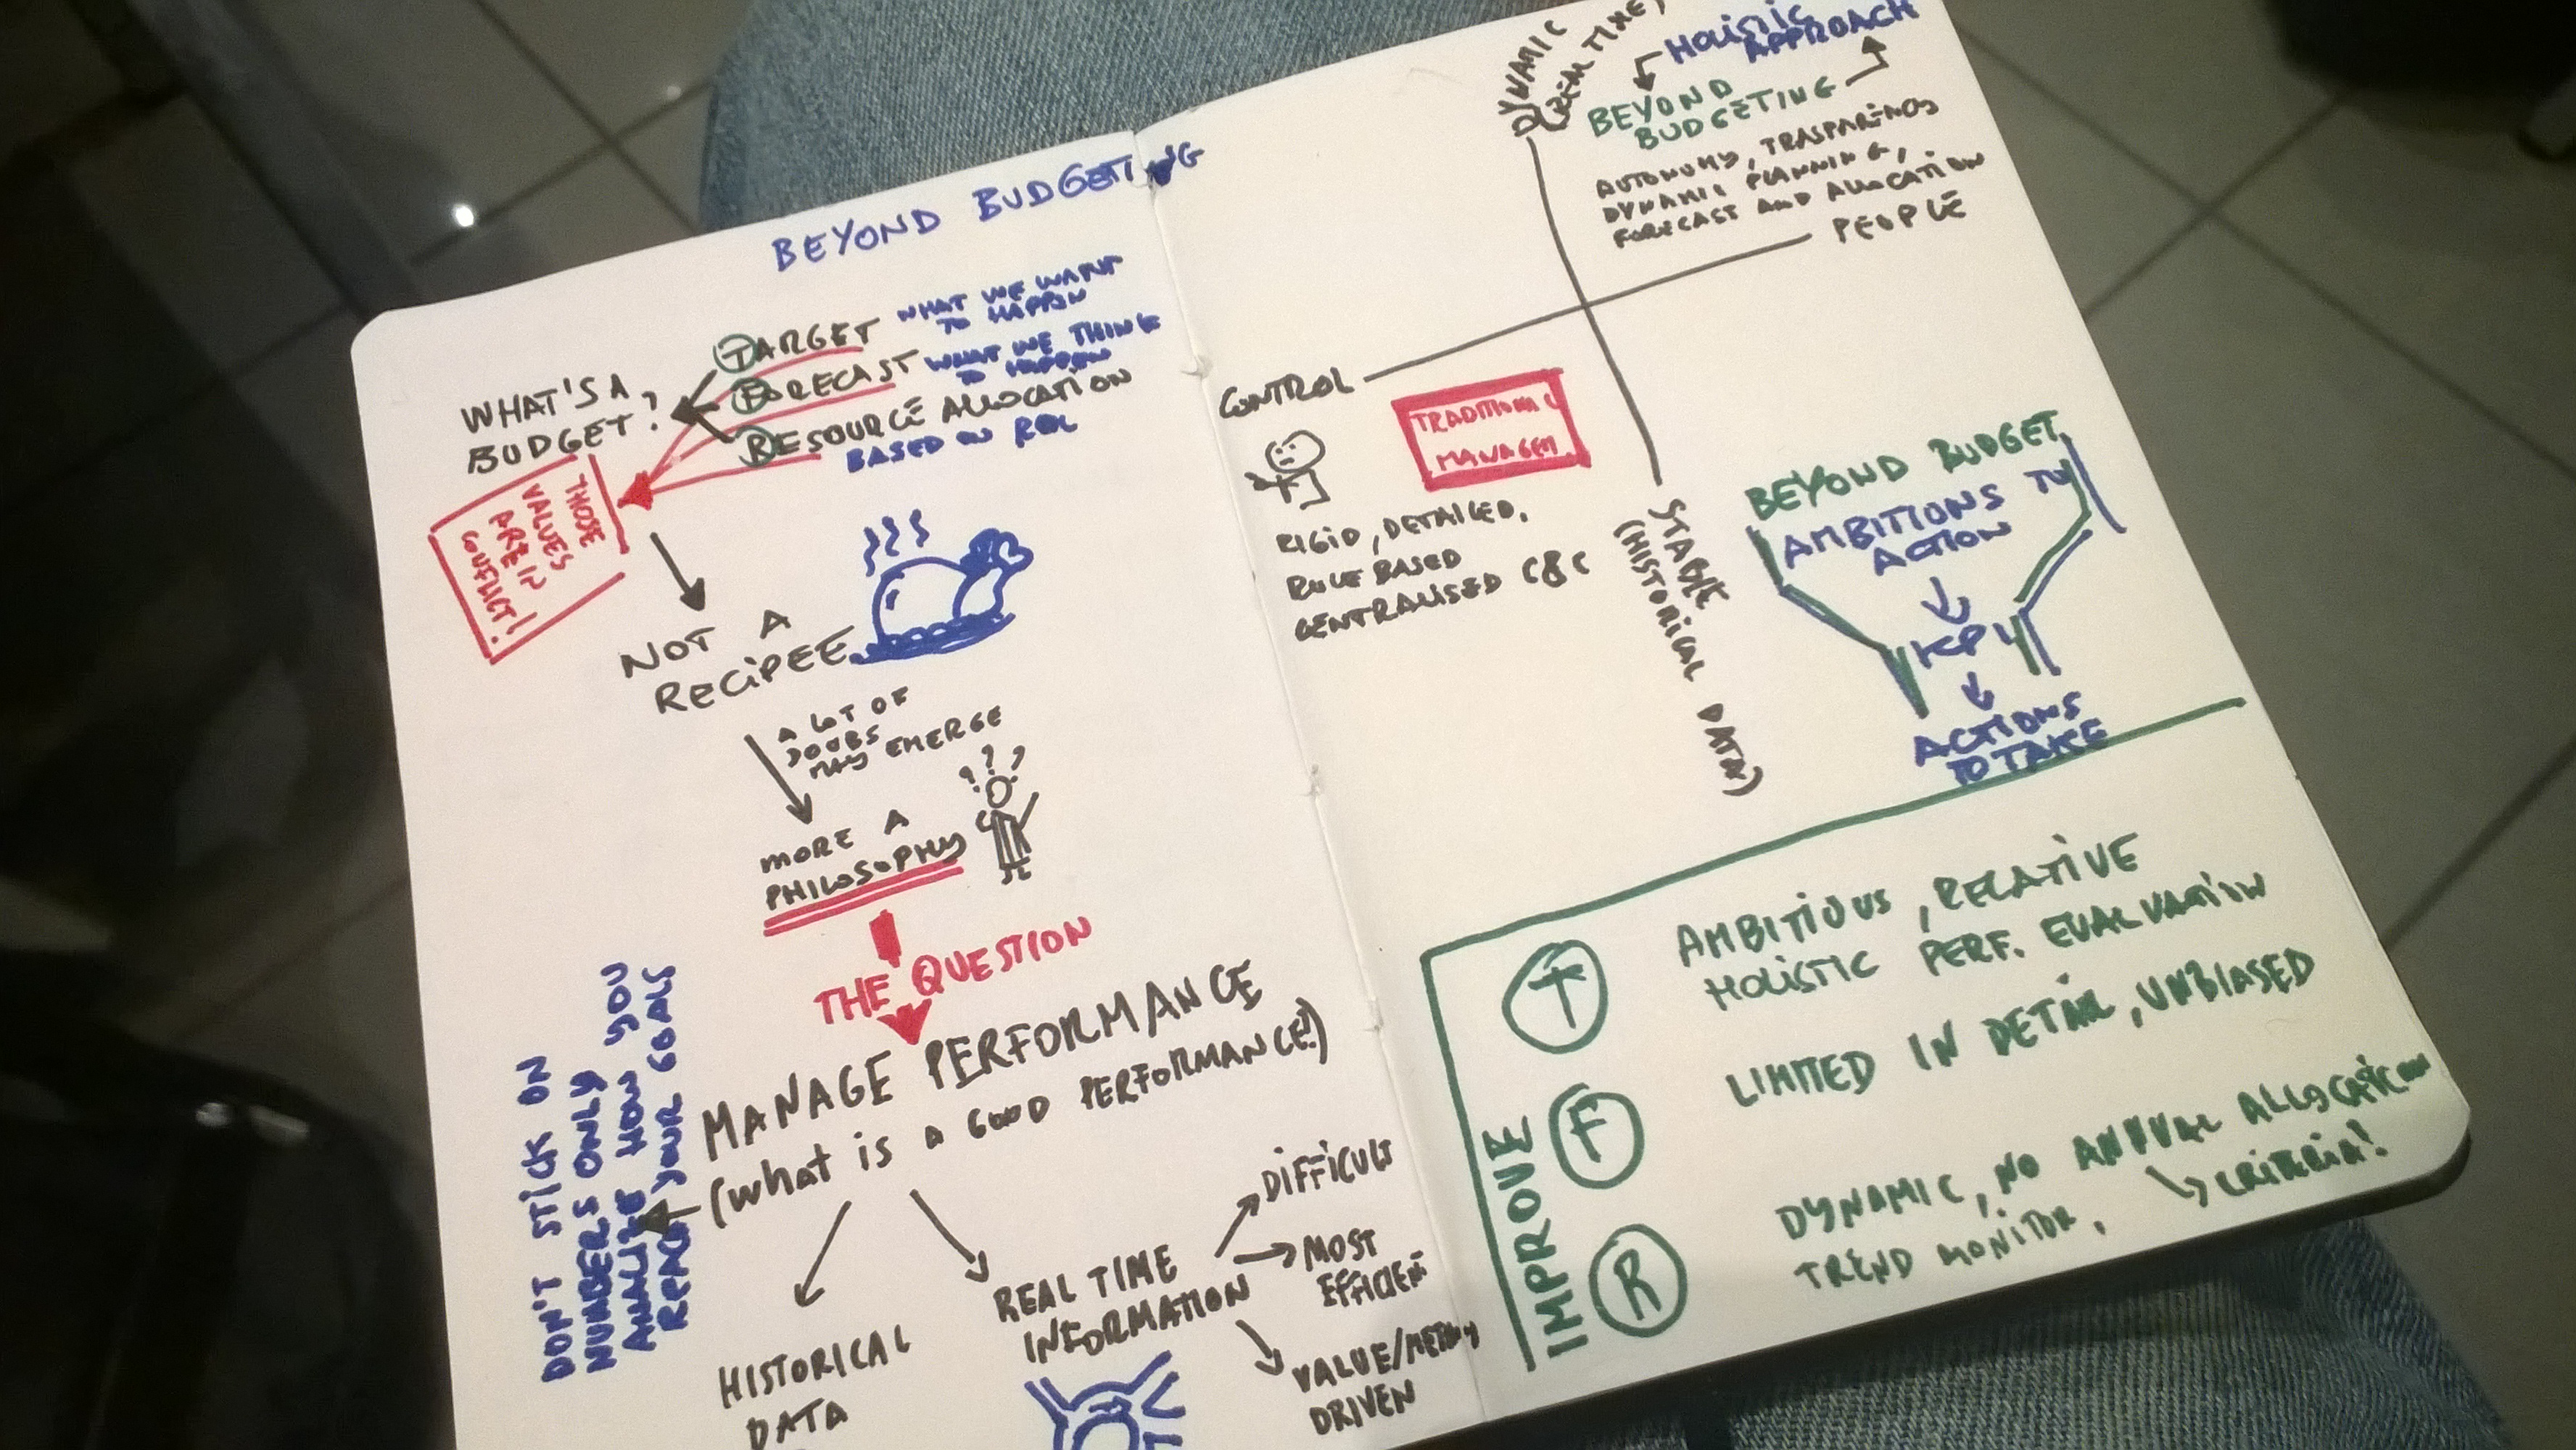 BEYOND BUDGETING
WHAT'S A
BUDGET?
TARGET
WHAT WE WANT
TO HAPPEN
FORECAST
WHAT WE THING
TO HAPPEN
RESOURCE ALLOCATION
BASED ON
THOSE
VALUES
ARE IN
CONFLICT!
NOT A
RECIPEE
A LOT OF
DOUBS
MAY EMERGE
MORE A
PHILOSOPHY
THE QUESTION
MANAGE PERFORMANCE
(What is A GOOD PERFORMANCE?)
DON'T STICK ON
NUMBERS ONLY
HOW YOU
YOUR GOALS
HISTORICAL
DATA
REAL TIME
INFORMATION
DIFFICULT
MOST
EFFICIENT
VALUE/
DRIVEN
DYNAMIC
(REAL TIME)
HOLISTIC
APPROACH
BEYOND
BUDGETING
AUTONOMY,
DYNAMIC PLANNING,
FORECAST AND ALLOCATION
PEOPLE
CONTROL
TRADITIONAL
MANAGEM
RIGID, DETAILED,
RULE BASED
CENTRALISED C&C
STABLE
(HISTORICAL DATA)
BEYOND BUDGET
AMBITIONS TO
ACTION
KPI
ACTIONS
TO TAKE
IMPROVE
T
AMBITIOUS, RELATIVE
HOLISTIC PERF. EVALUATION
F
LIMITED IN DETAIL, UNBIASED
R
DYNAMIC, NO ANNUAL ALLOCATION
TREND MONITOR,
CRITERIA!